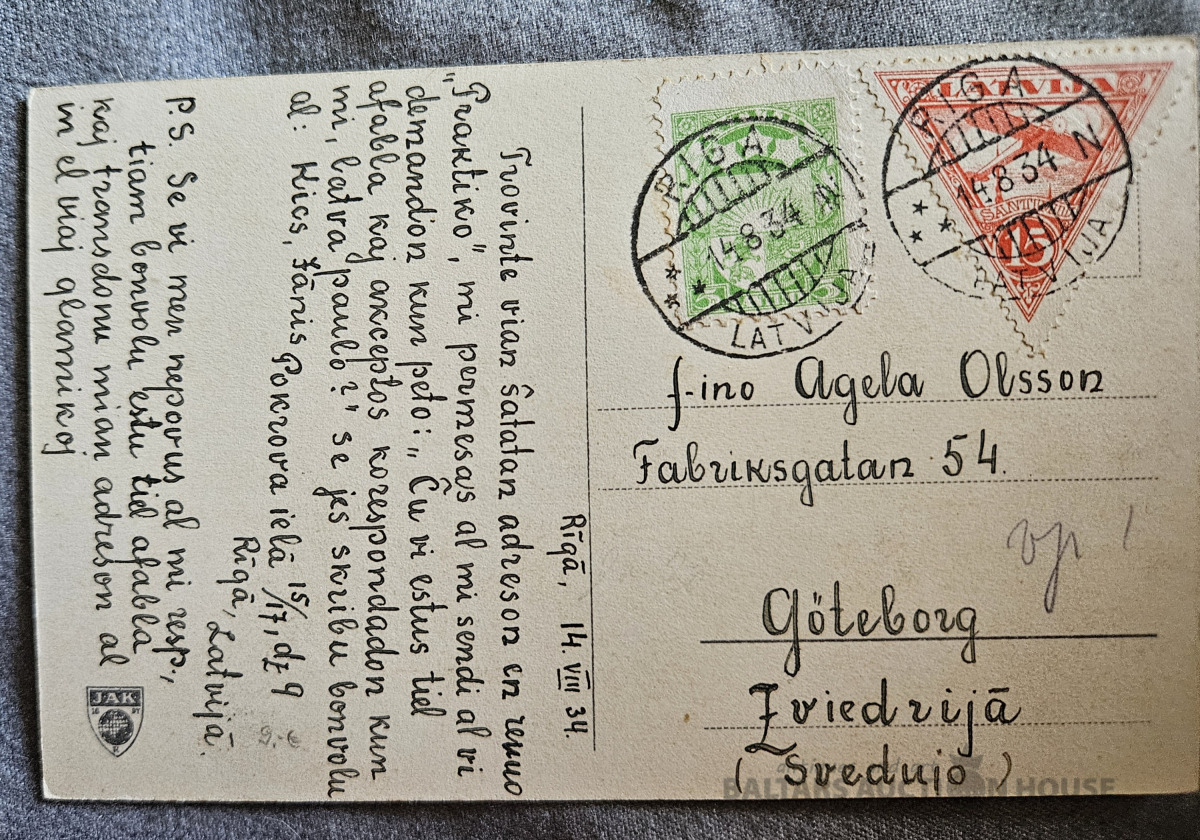 Rīgā, 14. VIII 34.
Trovinte vian ŝatatan adreson en revuo
"Praktiko", mi permesas al mi sendi al vi
demandon kun peto: „Ĉu vi estus tiel
afabla kaj akceptos korespondadon kun
mi, latva paulo?", se jes skribu bonvolu
al: Kics, Jānis Pokrova ielā 15/17, dz 9
Rīgā, Latvijā.
P.S. Se vi men nepovus al mi resp.,
tiam bonvolu estu tiel afabla
kaj transdonu mian adreson al
iu el viaj glamikoj
JAK
RIGA
14 8 34 N
LATVIJA
LATVIJA
SANTIMU
15
RIGA
14 8 34 N
LATVIJA
f-ino Agela Olsson
Fabriksgatan 54.
Göteborg
Zviedrijā
(Svedujo)
BALTARS AUCTION HOUSE